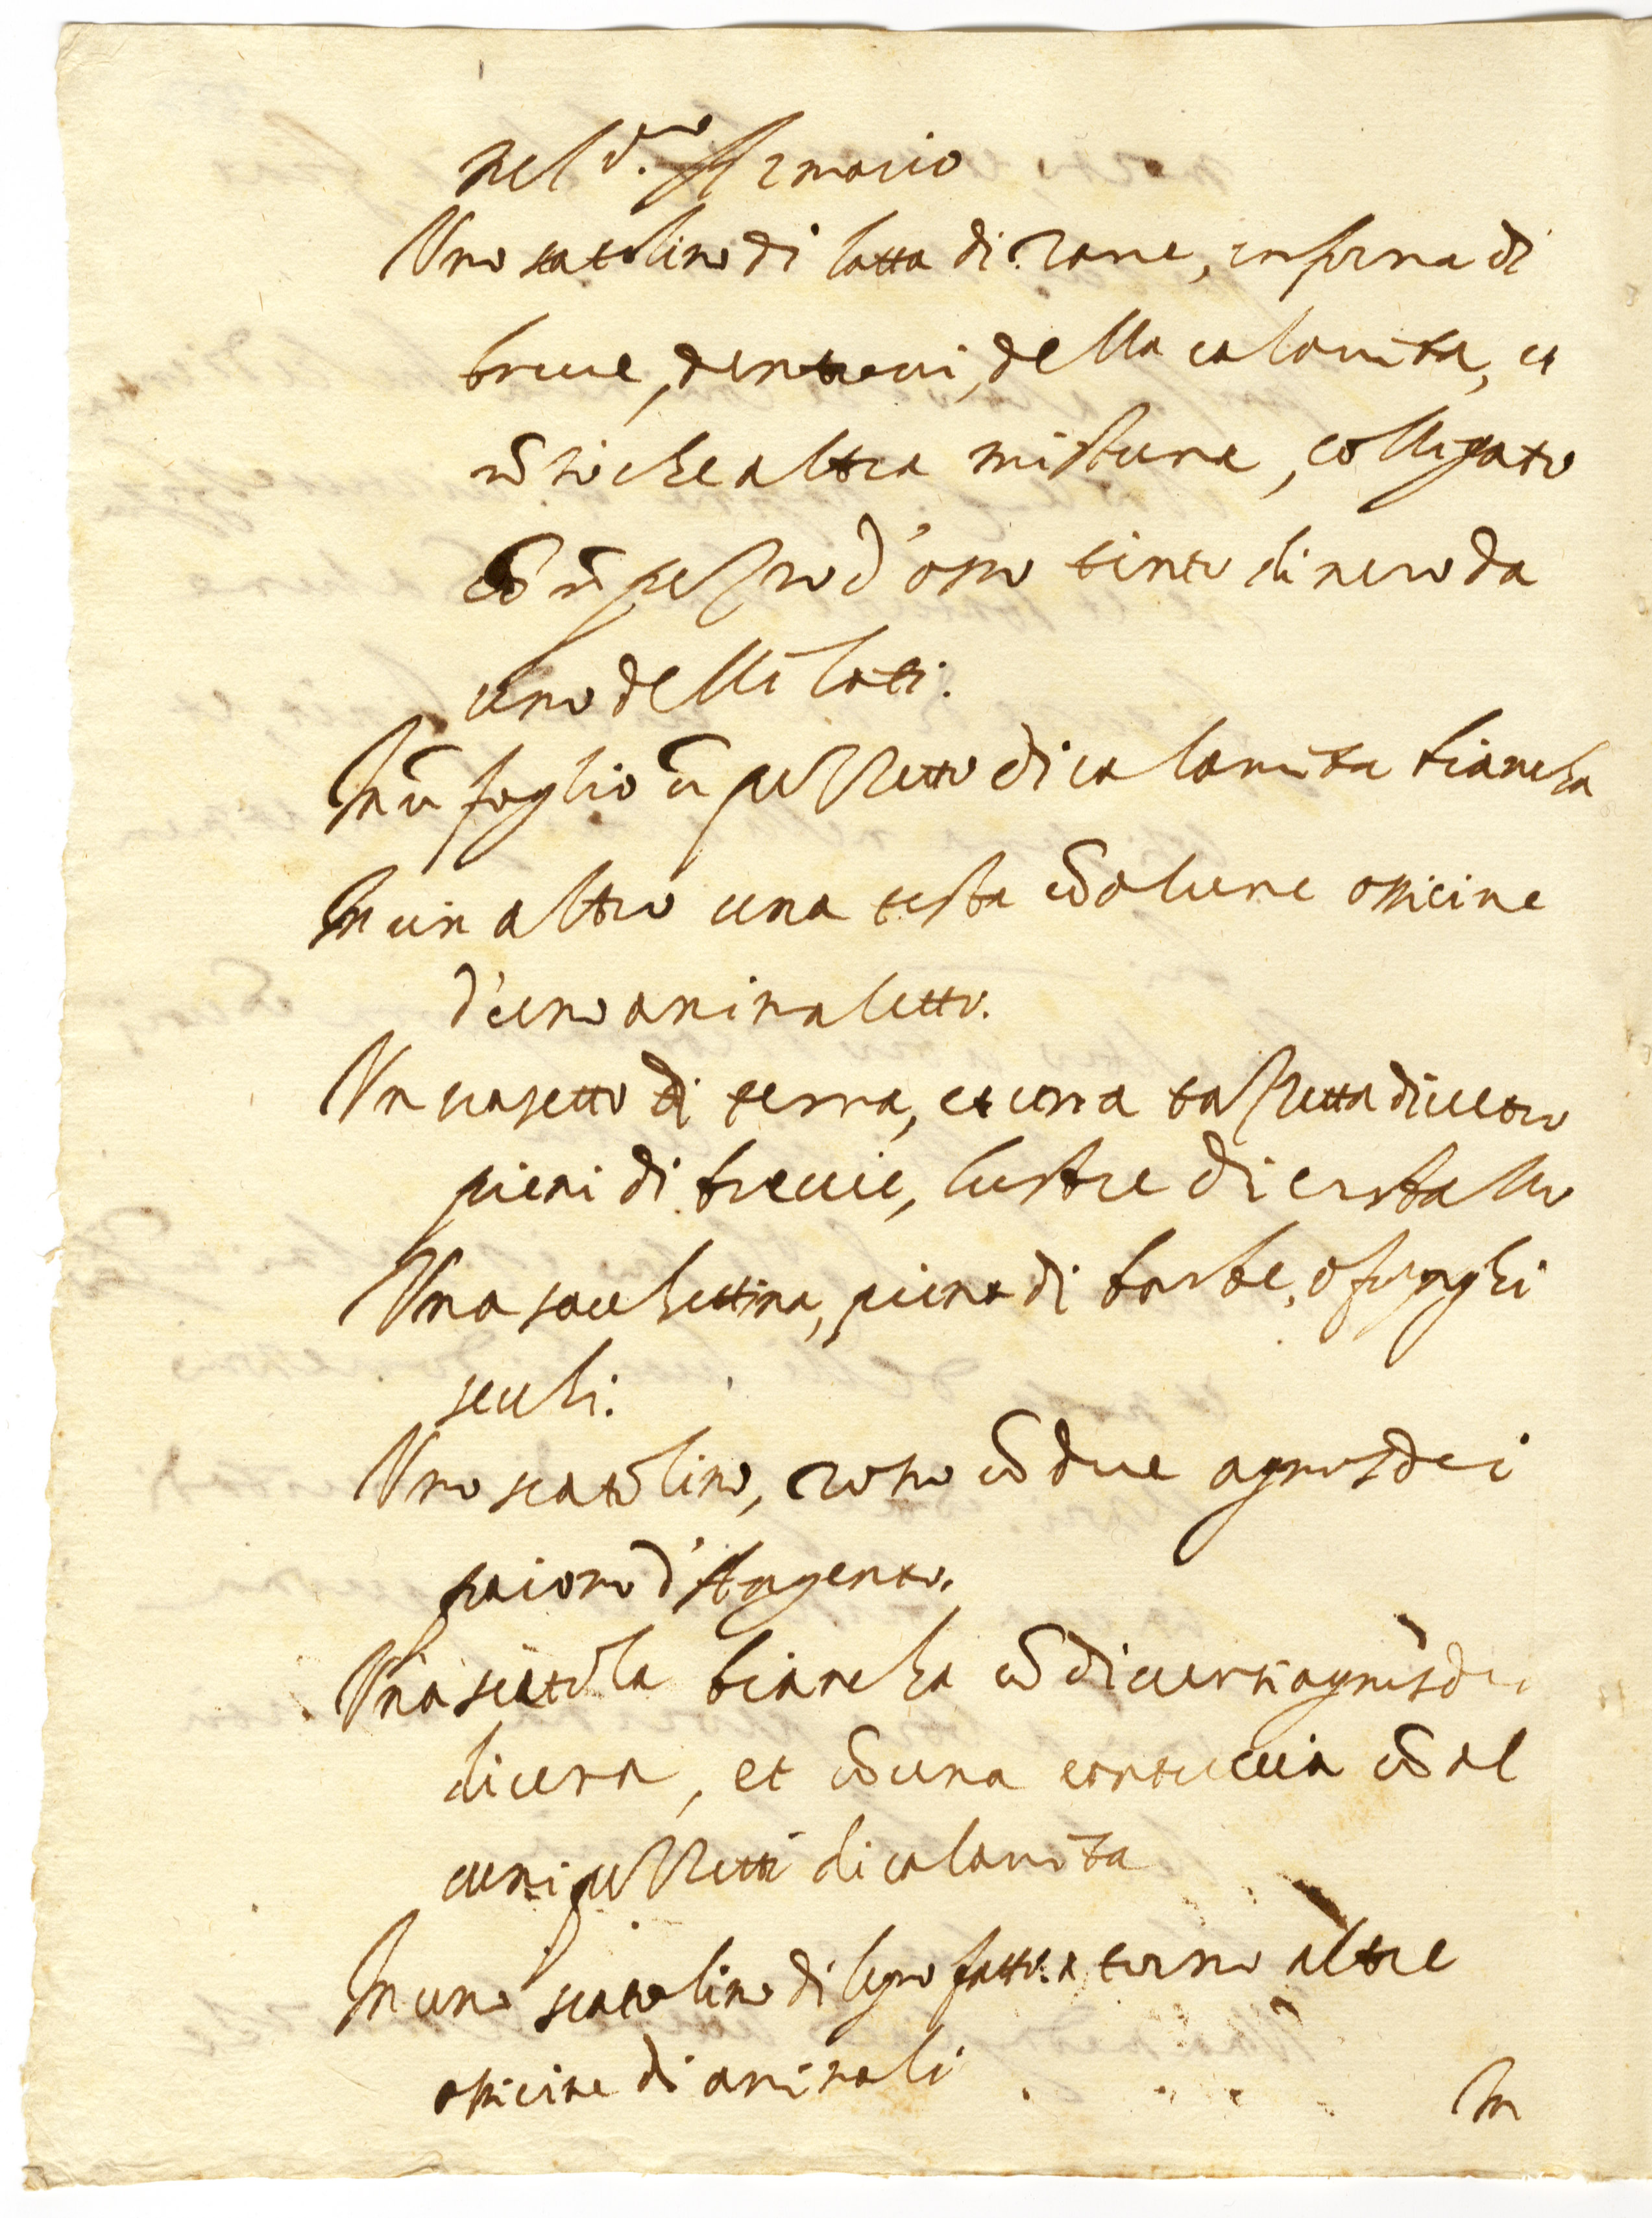 nel d.º Armario
Uno scatolino di latta di rame, in forma di
breue, dentroui, della calamita, et
nō sò che altra mistura, colligato
cō ū pezzo d'osso tinto di nero da
uno delli lati.
In ū foglio ū pezzetto di calamita biancha
In un altro una testa cō alcune ossicine
d'uno animaletto.
Un uasetto di terra, et una tazzetta di uetro
pieni di breccie, lustre di cristallo
Una sacchettina, piena di barbe, o funghi
secchi.
Uno scatolino, rosso cō due agnusdei
paiono d'Argento.
Una scatola biancha cō diuersi agnusdei
di cera, et cō una cartuccia cō al
cuni pezzetti di calamita
In uno scatolino di legno fatto a torno altre
ossicine di animali
In